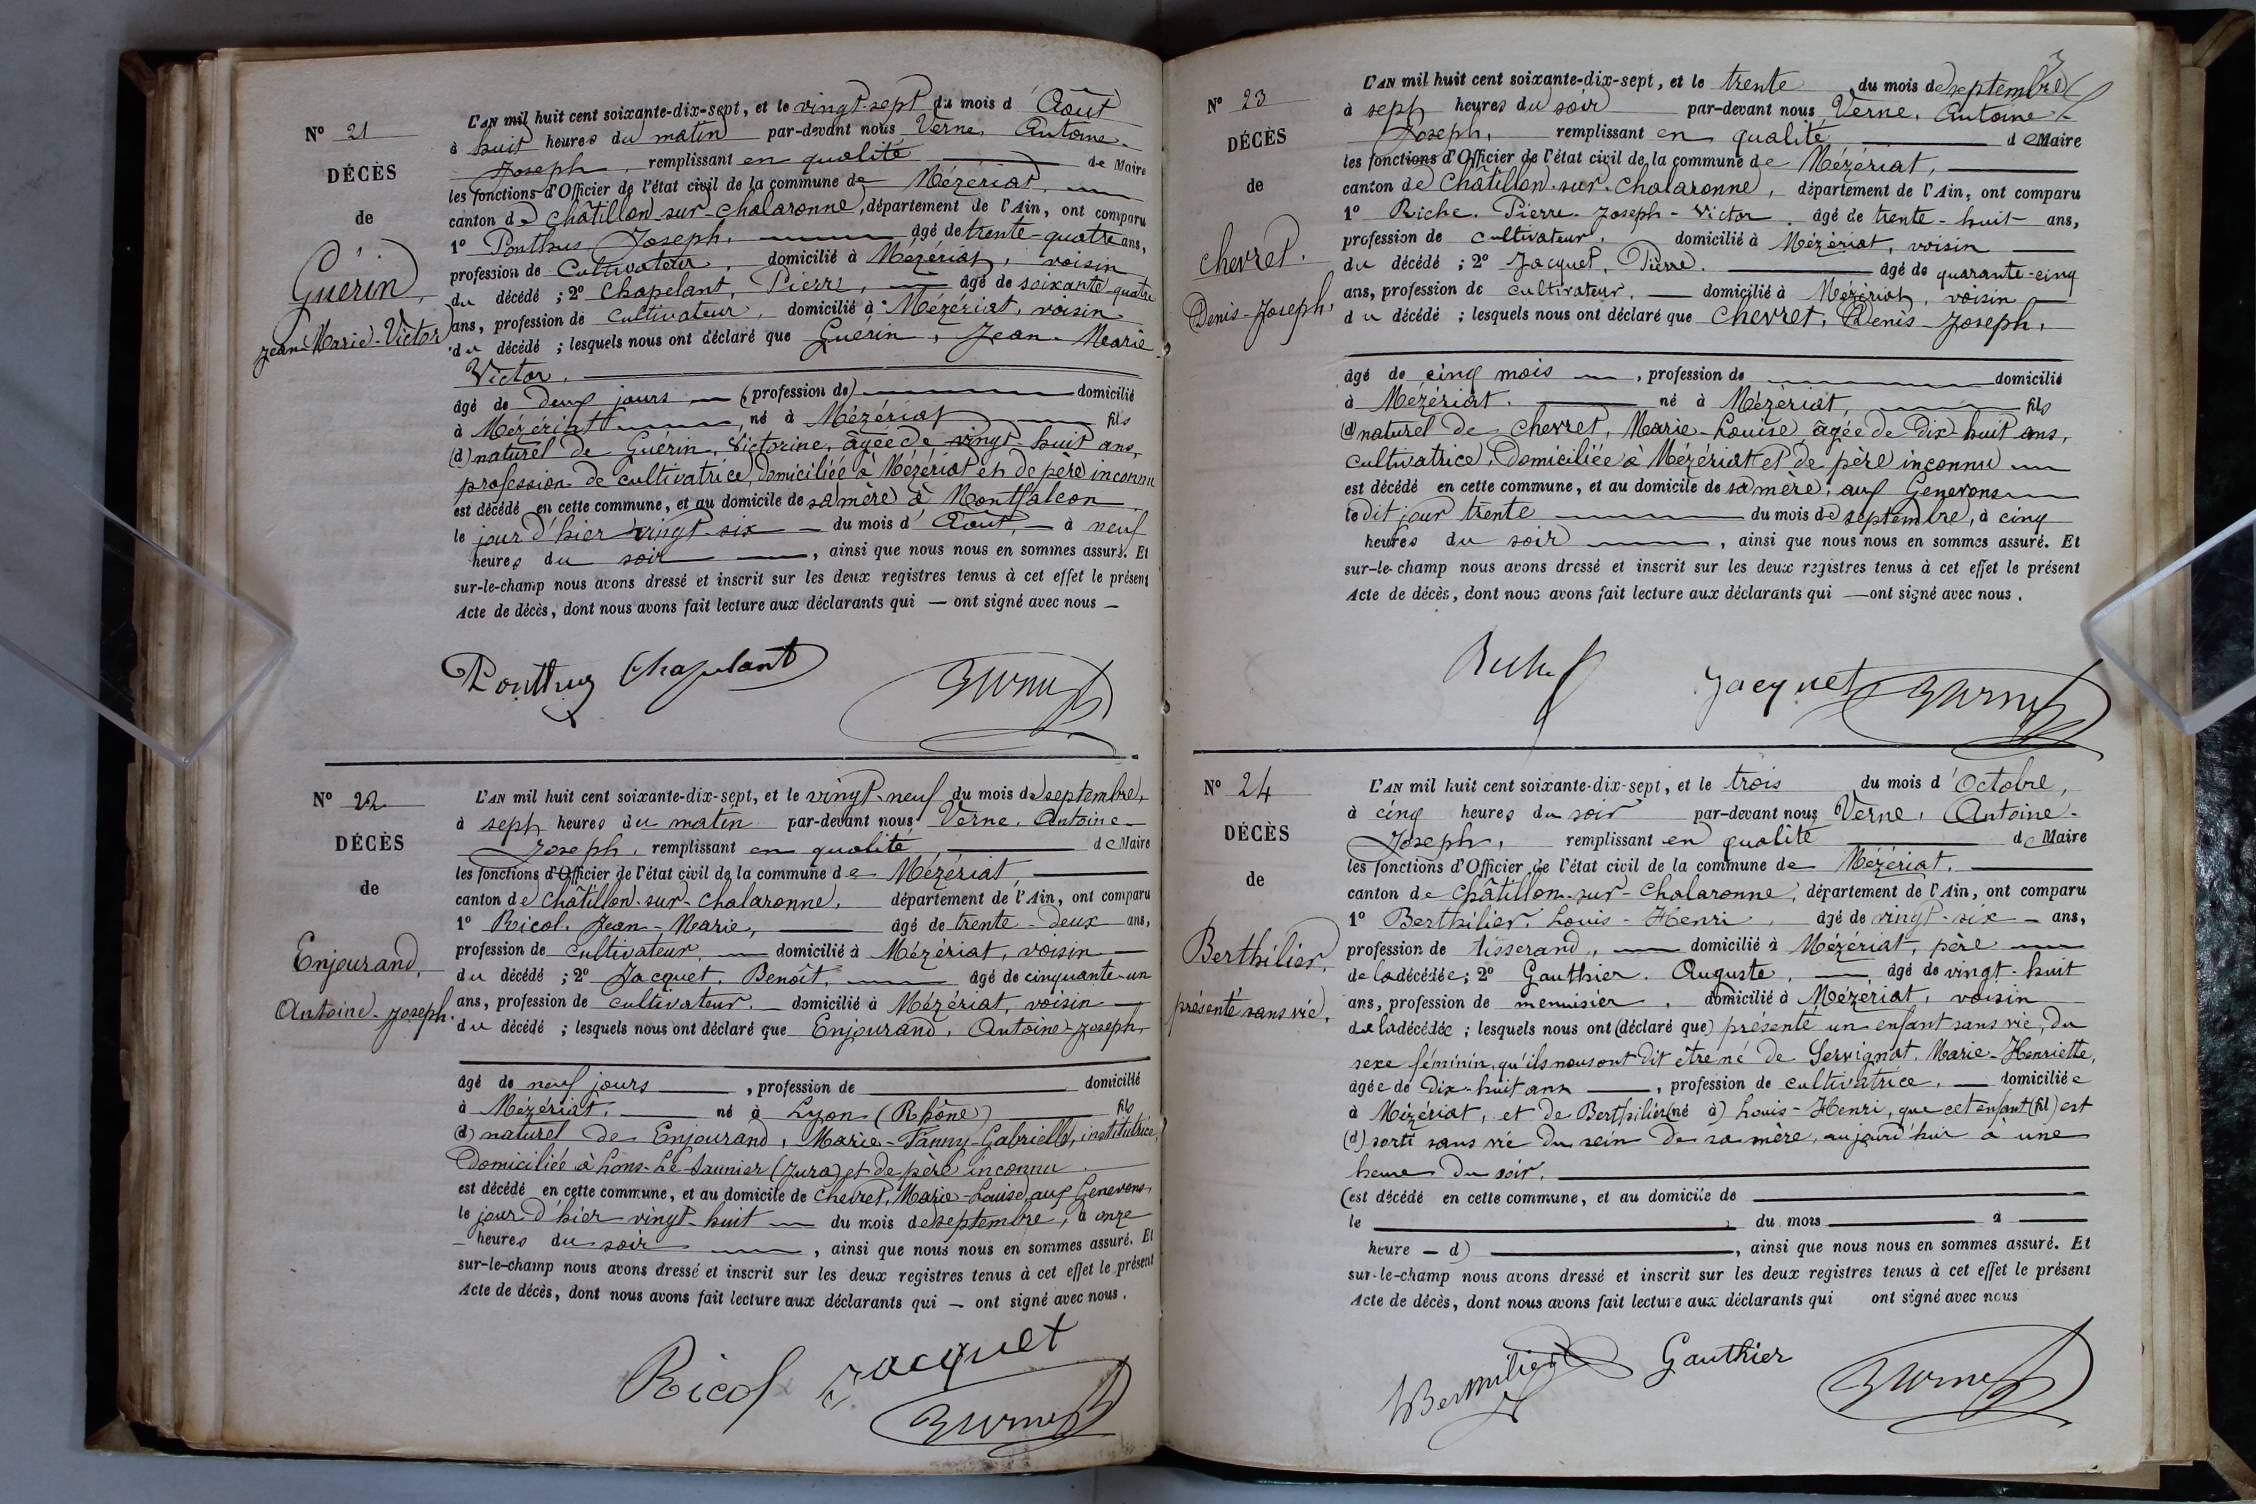 N° 21
DÉCÈS
de
Guérin,
Jean-Marie-Victor
L'AN mil huit cent soixante-dix-sept, et le vingt-sept du mois d'Août
à huit heures du matin par-devant nous Verne, Antoine-
Joseph, remplissant en qualité de Maire
les fonctions d'Officier de l'état civil de la commune de Mézériat,
canton de Châtillon-sur-Chalaronne, département de l'Ain, ont comparu
1° Ponthus Joseph, âgé de trente-quatre ans,
profession de Cultivateur, domicilié à Mézériat, voisin
du décédé ; 2° Chapelant, Pierre, âgé de soixante quatre
ans, profession de Cultivateur, domicilié à Mézériat, voisin
du décédé ; lesquels nous ont déclaré que Guérin, Jean-Marie-
Victor,
âgé de deux jours (profession de) domicilié
à Mézériat, né à Mézériat fils
(d) naturel de Guérin, Victorine, âgée de vingt-huit ans,
profession de cultivatrice, domiciliée à Mézériat et de père inconnu
est décédé en cette commune, et au domicile de sa mère à Montfalcon
le jour d'hier vingt-six du mois d'Août, à neuf
heures du soir, ainsi que nous nous en sommes assuré. Et
sur-le-champ nous avons dressé et inscrit sur les deux registres tenus à cet effet le présent
Acte de décès, dont nous avons fait lecture aux déclarants qui — ont signé avec nous —
Ponthus Chapelant Verne
N° 22
DÉCÈS
de
Enjourand,
Antoine-Joseph.
L'AN mil huit cent soixante-dix-sept, et le vingt-neuf du mois de septembre,
à sept heures du matin par-devant nous Verne, Antoine-
Joseph, remplissant en qualité de Maire
les fonctions d'Officier de l'état civil de la commune de Mézériat,
canton de Châtillon-sur-Chalaronne, département de l'Ain, ont comparu
1° Ricol, Jean-Marie, âgé de trente-deux ans,
profession de cultivateur, domicilié à Mézériat, voisin
du décédé ; 2° Jacquet, Benoît, âgé de cinquante-un
ans, profession de cultivateur, domicilié à Mézériat, voisin
du décédé ; lesquels nous ont déclaré que Enjourand, Antoine-Joseph,
âgé de neuf jours, profession de domicilié
à Mézériat, né à Lyon (Rhône) fils
(d) naturel de Enjourand, Marie-Fanny-Gabrielle, institutrice,
Domiciliée à Lons-Le-Saunier (Jura) et de père inconnu
est décédé en cette commune, et au domicile de Chevret, Marie-Louise, aux Genevons
le jour d'hier vingt-huit du mois de septembre, à onze
heures du soir, ainsi que nous nous en sommes assuré. Et
sur-le-champ nous avons dressé et inscrit sur les deux registres tenus à cet effet le présent
Acte de décès, dont nous avons fait lecture aux déclarants qui — ont signé avec nous.
Ricol Jacquet
Verne
N° 23
DÉCÈS
de
Chevret,
Denis-Joseph,
L'AN mil huit cent soixante-dix-sept, et le trente du mois de septembre
à sept heures du soir par-devant nous Verne, Antoine-
Joseph, remplissant en qualité de Maire
les fonctions d'Officier de l'état civil de la commune de Mézériat,
canton de Châtillon-sur-Chalaronne, département de l'Ain, ont comparu
1° Riche, Pierre-Joseph-Victor, âgé de trente-huit ans,
profession de cultivateur, domicilié à Mézériat, voisin
du décédé ; 2° Jacquet, Pierre, âgé de quarante-cinq
ans, profession de cultivateur, domicilié à Mézériat, voisin
du décédé ; lesquels nous ont déclaré que Chevret, Denis-Joseph,
âgé de cinq mois, profession de domicilié
à Mézériat, né à Mézériat, fils
(d) naturel de Chevret, Marie-Louise, âgée de Dix-huit ans,
cultivatrice, Domiciliée à Mézériat et de père inconnu
est décédé en cette commune, et au domicile de sa mère, aux Genevons
le dit jour trente du mois de septembre, à cinq
heures du soir, ainsi que nous nous en sommes assuré. Et
sur-le-champ nous avons dressé et inscrit sur les deux registres tenus à cet effet le présent
Acte de décès, dont nous avons fait lecture aux déclarants qui — ont signé avec nous.
Riche Jacquet Verne
N° 24
DÉCÈS
de
Berthilier,
présenté sans vie,
L'AN mil huit cent soixante-dix-sept, et le trois du mois d'Octobre,
à cinq heures du soir par-devant nous Verne, Antoine-
Joseph, remplissant en qualité de Maire
les fonctions d'Officier de l'état civil de la commune de Mézériat,
canton de Châtillon-sur-Chalaronne, département de l'Ain, ont comparu
1° Berthilier, Louis-Henri, âgé de vingt-six ans,
profession de tisserand, domicilié à Mézériat, père
de la décédée ; 2° Gauthier, Auguste, âgé de vingt-huit
ans, profession de menuisier, domicilié à Mézériat, voisin
de la décédée ; lesquels nous ont (déclaré que) présenté un enfant sans vie, du
sexe féminin, qu'ils nous ont dit être né de Servignat, Marie-Henriette,
âgée de Dix-huit ans, profession de cultivatrice, domiciliée
à Mézériat, et de Berthilier (né à) Louis-Henri, que cet enfant (fil) est
(d) sorti sans vie du sein de sa mère, aujourd'hui à une
heure du soir.
(est décédé en cette commune, et au domicile de
le du mois à
heure — d), ainsi que nous nous en sommes assuré. Et
sur-le-champ nous avons dressé et inscrit sur les deux registres tenus à cet effet le présent
Acte de décès, dont nous avons fait lecture aux déclarants qui ont signé avec nous
Berthilier Gauthier Verne